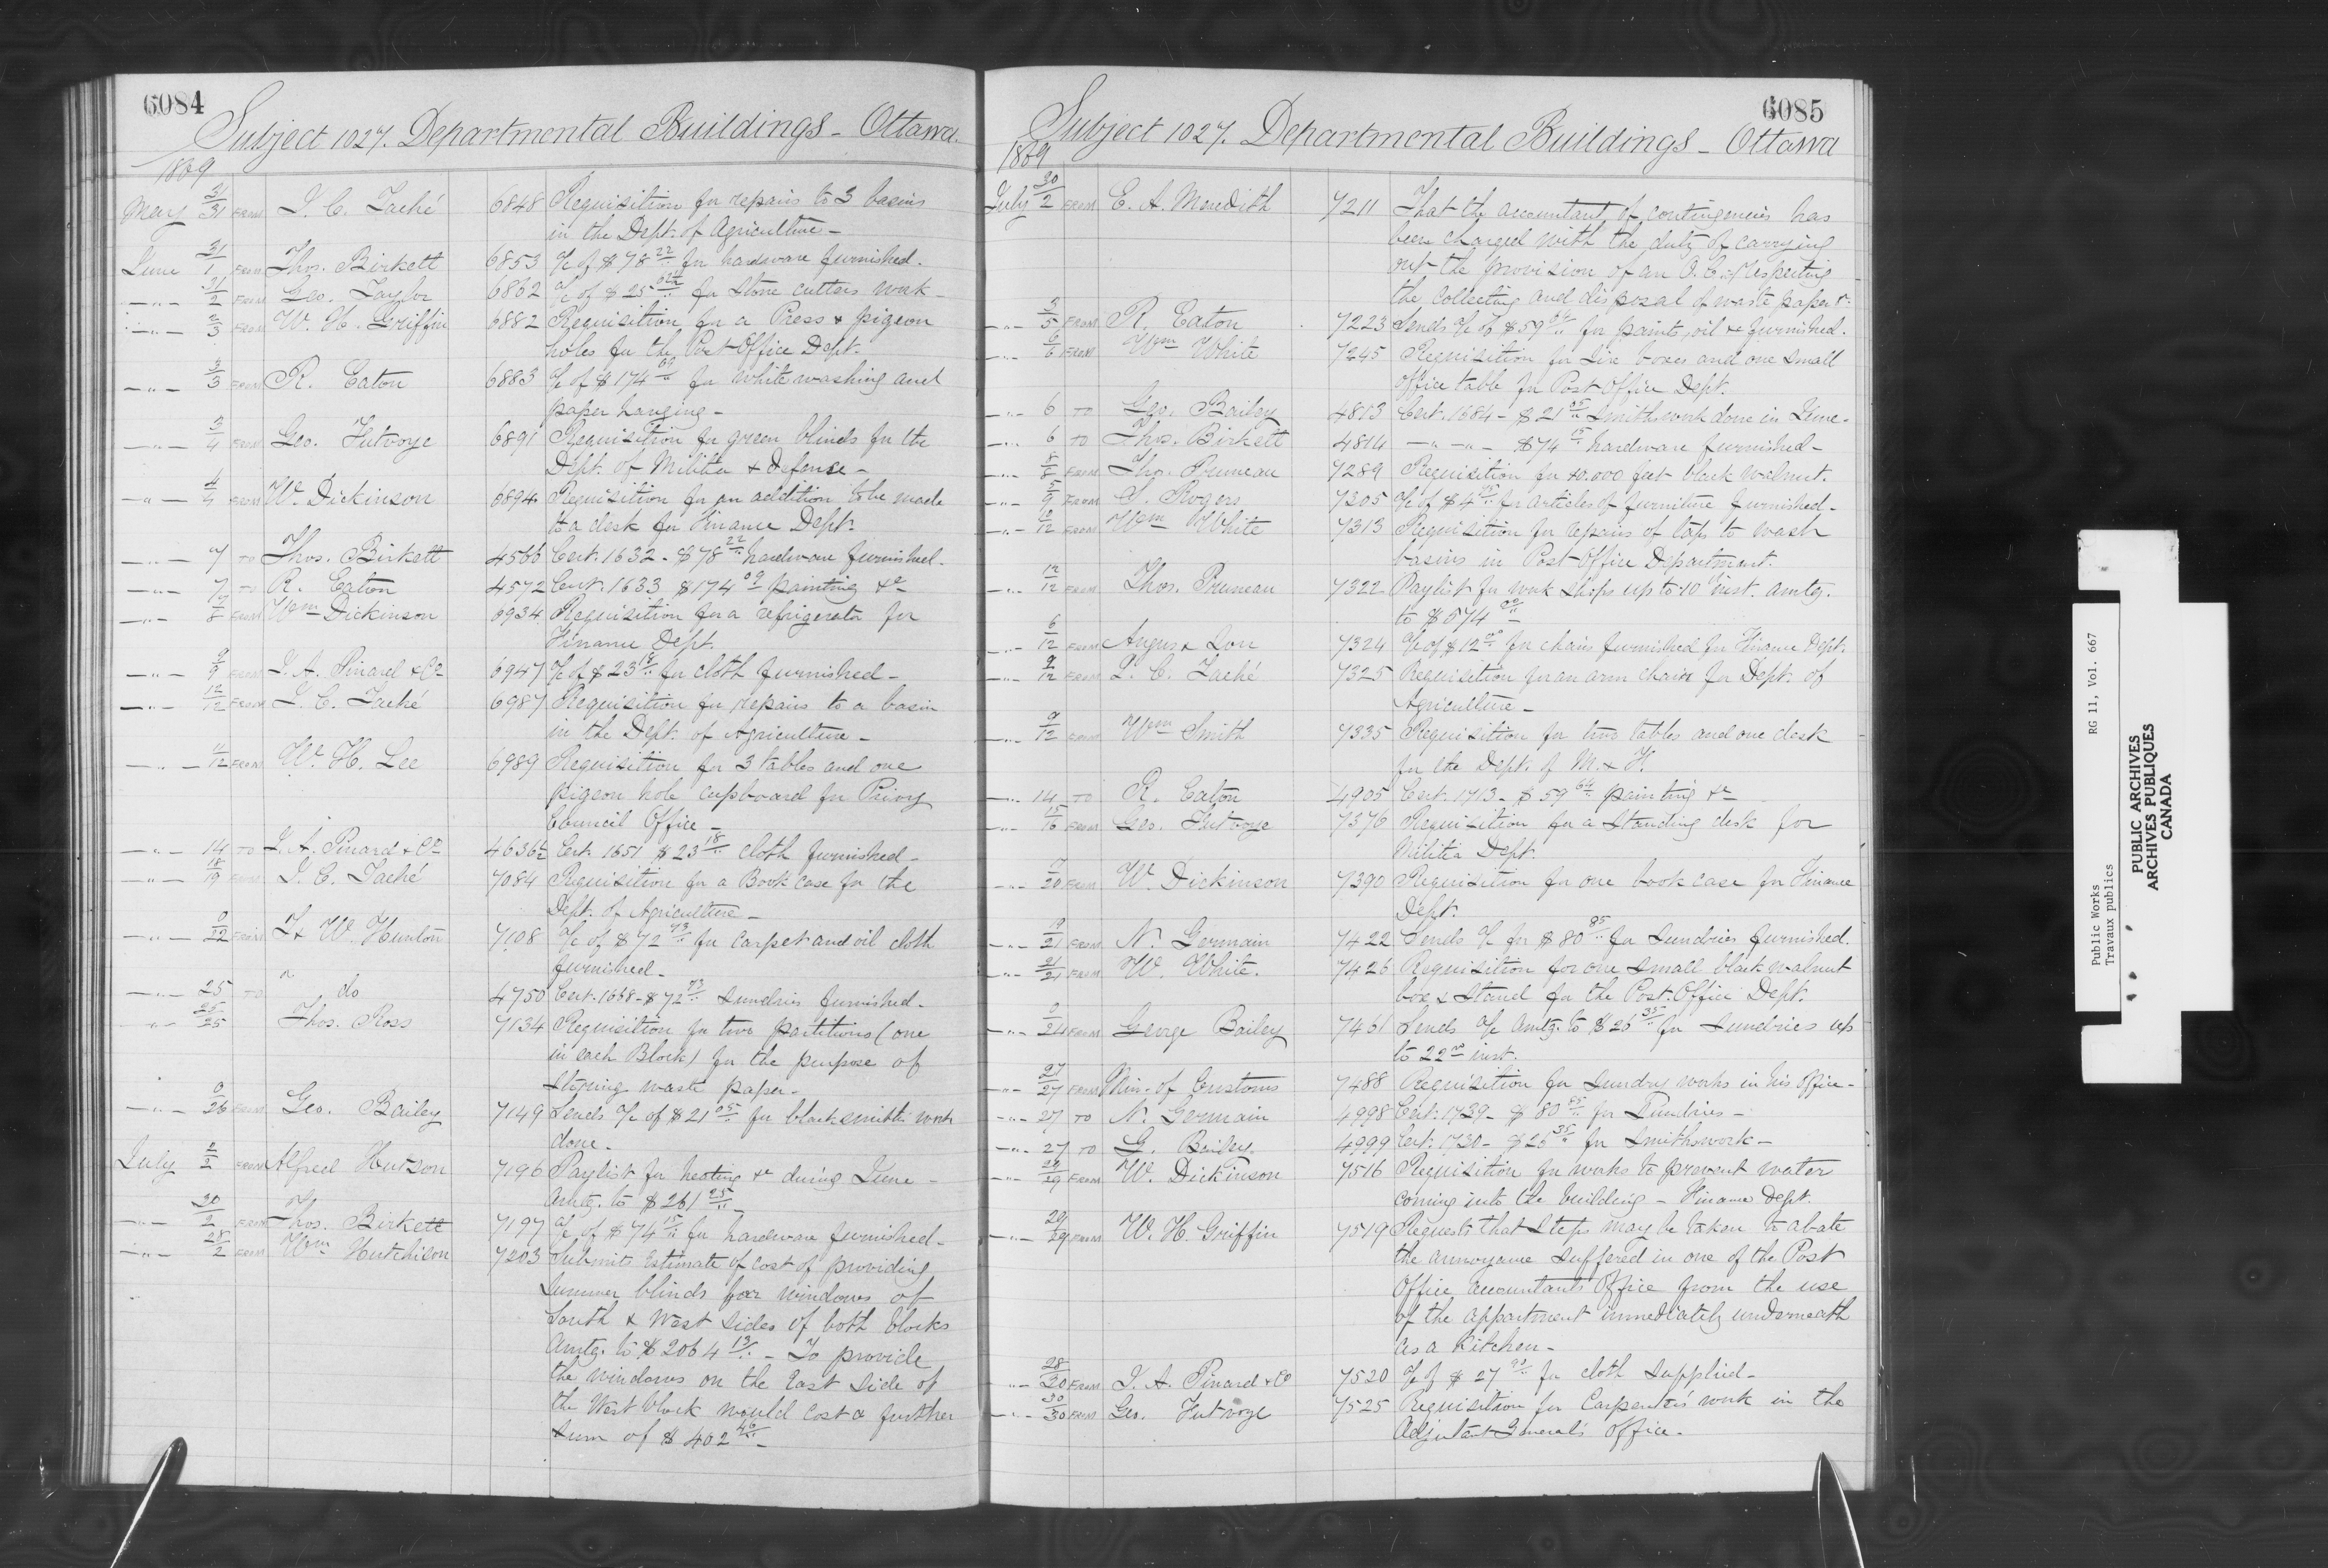 6084
Subject 1027. Departmental Buildings - Ottawa.
1869
May 31/31 FROM J. C. Taché 6848 Requisition for repairs to 3 basins
in the Dept. of Agriculture -
June 31/1 FROM Thos. Birkett 6853 a/c of $78 22/.. for hardware furnished.
-"- 31/2 FROM Geo. Taylor 6862 a/c of $25 62½/.. for Stone cutters work -
-"- 2/3 FROM W. H. Griffin 6882 Requisition for a Press & pigeon
holes for the Post Office Dept.
-"- 3/3 FROM R. Eaton 6883 a/c of $174 09/.. for white washing and
paper hanging -
-"- 3/4 FROM Geo. Futvoye 6891 Requisition for green blinds for the
Dept. of Militia & defense -
-"- 4/4 FROM W. Dickinson 6894 Requisition for an addition to be made
to a desk for Finance Dept.
-"- 7 TO Thos. Birkett 4566 Cert. 1632 - $78 22/.. hardware furnished.
-"- 7 TO R. Eaton 4572 Cert. 1633 $174 09 painting &c
-"- 7/8 FROM Wm Dickinson 6934 Requisition for a refrigerator for
Finance Dept.
-"- 9/9 FROM J. A. Pinard & Co 6947 a/c of $23 18/.. for cloth furnished -
-"- 12/12 FROM J. C. Taché 6987 Requisition for repairs to a basin
in the Dept. of Agriculture -
-"- 11/12 FROM W. H. Lee 6989 Requisition for 3 tables and one
pigeon hole cupboard for Privy
Council Office -
-"- 14 TO J. A. Pinard & Co 4636½ Cert. 1651 $23 18/.. cloth furnished -
-"- 18/19 FROM J. C. Taché 7084 Requisition for a Book case for the
Dept. of Agriculture -
-"- 0/22 FROM T & W. Hunton 7108 a/c of $72 73/.. for carpet and oil cloth
furnished -
-"- 25 TO do 4750 Cert. 1668 - $72 73/.. Sundries furnished -
-"- 25/25 Thos. Ross 7134 Requisition for two partitions (one
in each Block) for the purpose of
storing waste paper -
-"- 0/26 FROM Geo. Bailey 7149 Sends a/c of $21 05/.. for blacksmith work
done -
July 2/2 FROM Alfred Hutson 7196 Paylist for heating &c during June -
Amtg. to $261 25/.. -
-"- 30/2 FROM Thos. Birkett 7197 a/c of $74 15/.. for hardware furnished -
-"- 28/2 FROM Wm Hutchison 7203 Submits Estimate of cost of providing
summer blinds for windows of
South & West sides of both blocks
Amtg. to $2064 13/.. - To provide
the windows on the East side of
the West block would cost a further
sum of $402 46/.. -
6085
Subject 1027. Departmental Buildings - Ottawa
1869
July 30/2 FROM E. A. Meredith 7211 That the accountant of contingencies has
been charged with the duty of carrying
out the provision of an O. C. respecting
the collecting and disposal of waste paper &c
-"- 3/5 FROM R. Eaton 7223 Sends a/c of $59 64/.. for paints, oil &c furnished.
-"- 6/6 FROM Wm White 7245 Requisition for six boxes and one small
office table for Post Office Dept.
-"- 6 TO Geo. Bailey 4813 Cert. 1684 - $21 05/.. Smiths work done in June -
-"- 6 TO Thos. Birkett 4814 -"- -"- $74 15/.. hardware furnished -
-"- 8/8 FROM Thos. Pruneau 7289 Requisition for 40.000 feet black walnut.
-"- 5/9 FROM S. Rogers 7305 a/c of $4 45/.. for articles of furniture furnished -
-"- 12/12 FROM Wm White 7313 Requisition for repairs of taps to wash
basins in Post Office Department.
-"- 12/12 FROM Thos. Pruneau 7322 Paylist for work Shops up to 10 inst. amtg.
to $574 00/..
-"- 6/12 FROM Angus & Son 7324 a/c of $12 00/.. for chairs furnished for Finance Dept.
-"- 9/12 FROM J. C. Taché 7325 Requisition for an arm chair for Dept. of
Agriculture -
-"- 9/12 FROM Wm Smith 7335 Requisition for two tables and one desk
for the Dept. of M. & F.
-"- 14 TO R. Eaton 4905 Cert. 1713 - $59 64/.. painting &c
-"- 15/16 FROM Geo. Futvoye 7376 Requisition for a standing desk for
Militia Dept.
-"- 7/20 FROM W. Dickinson 7390 Requisition for one book case for Finance
Dept.
-"- 19/21 FROM N. Germain 7422 Sends a/c for $80 85/.. for Sundries furnished.
-"- 21/21 FROM W. White. 7426 Requisition for one small black walnut
box & Stand for the Post Office Dept.
-"- 0/24 FROM George Bailey 7461 Sends a/c amtg. to $26 35/.. for Sundries up
to 22nd inst.
-"- 27/27 FROM Min. of Customs 7488 Requisition for Sundry works in his office -
-"- 27 TO N. Germain 4998 Cert. 1739 - $80 85/.. for Sundries -
-"- 27 TO G. Bailey. 4999 Cert. 1730 - $26 35/.. for Smithswork -
-"- 29/29 FROM W. Dickinson 7516 Requisition for works to prevent water
coming into the building - Finance Dept.
-"- 29/29 FROM W. H. Griffin 7519 Requests that steps may be taken to abate
the annoyance suffered in one of the Post
Office accountants Office from the use
of the appartment immediately underneath
as a Kitchen -
-"- 28/30 FROM J. A. Pinard & Co 7520 a/c of $27 for cloth Supplied -
-"- 30/30 FROM Geo. Futvoye 7525 Requisition for Carpenter's work in the
Adjutant General's Office -
Public Works RG 11, Vol. 667
Travaux publics
PUBLIC ARCHIVES
ARCHIVES PUBLIQUES
CANADA